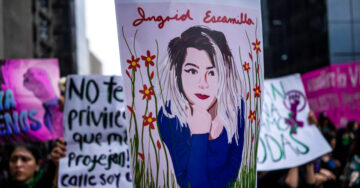 Ingrid Escamilla
No te
privile
que m
Protejen!
calle soy
ENOS
DAS